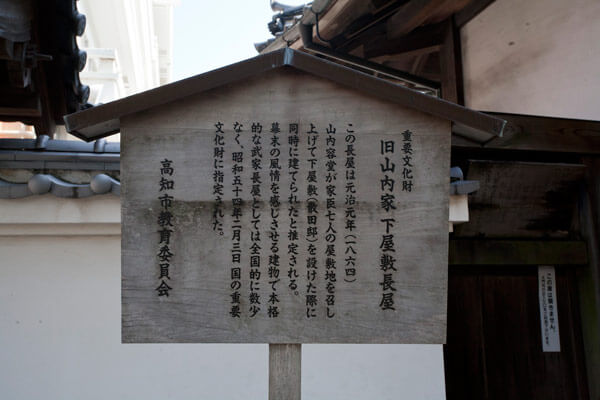 重要文化財
旧山内家下屋敷長屋
この長屋は元治元年（一八六四）
山内容堂が家臣七人の屋敷地を召し
上げて下屋敷（散田邸）を設けた際に
同時に建てられたと推定される。
幕末の風情を感じさせる建物で本格
的な武家長屋としては全国的に数少
なく、昭和五十四年二月三日 国の重要
文化財に指定された。
高知市教育委員会
この扉は開きません。